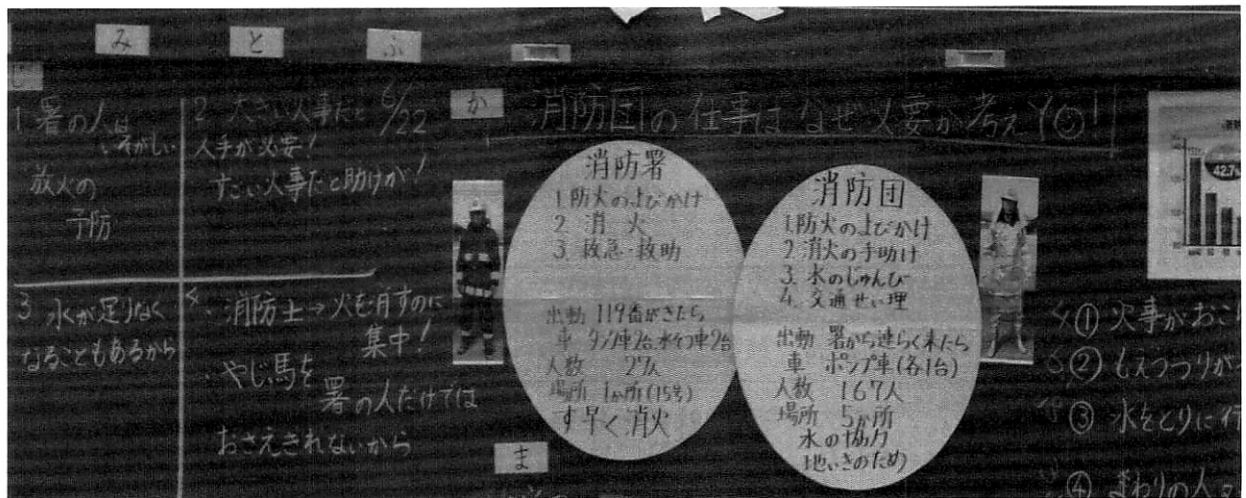 み
と
ふ
じ
1 署の人は
いそがしい
放火の
予防
2 大きい火事だと
6/22
人手が必要!
すごい火事だと助けが!
3 水が足りなく
なることもあるから
4
・消防士→火を消すのに
集中!
・やじ馬を
署の人だけでは
おさえきれないから
か
消防団の仕事はなぜ必要か考えよう!
消防署
1.防火のよびかけ
2 消火
3. 救急・救助
出動 119番がきたら
車 タンク車2台水そう車2台
人数 27人
場所 1か所(15号)
す早く消火
消防団
1.防火のよびかけ
2 消火の手助け
3. 水のじゅんび
4. 交通せい理
出動 署から連らく来たら
車 ポンプ車(各1台)
人数 167人
場所 5か所
水の協力
地いきのため
42.7%
① 火事がおこ
② もえつりが
③ 水をとりに行
④ まわりの人
ま